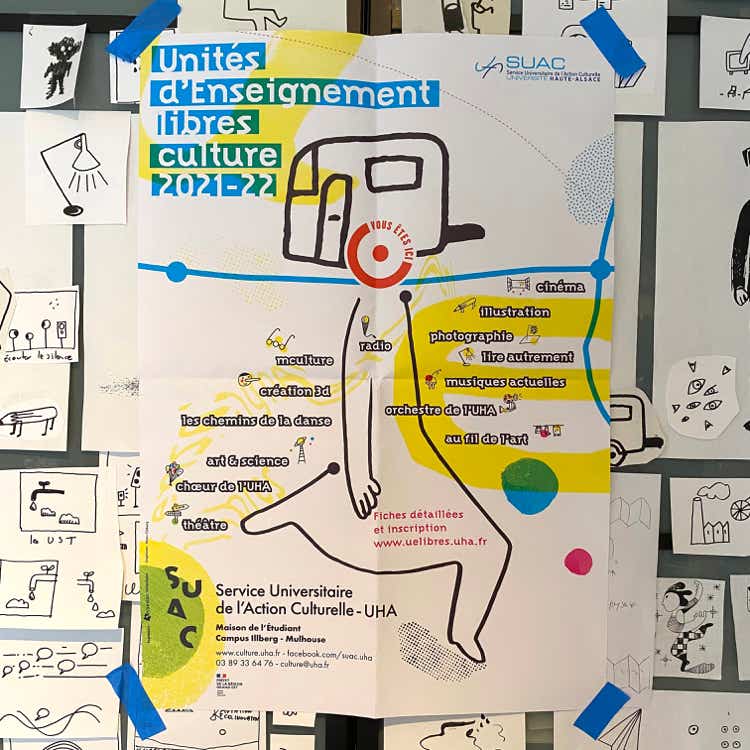 Unités
d'Enseignement
libres
culture
2021-22
SUAC
Service Universitaire de l'Action Culturelle
UNIVERSITÉ HAUTE-ALSACE
VOUS ÊTES ICI
cinéma
illustration
photographie
radio
lire autrement
mculture
musiques actuelles
création 3d
orchestre de l'UHA
les chemins de la danse
au fil de l'art
art & science
chœur de l'UHA
théâtre
Fiches détaillées
et inscription
www.uelibres.uha.fr
SUAC
Service Universitaire
de l'Action Culturelle - UHA
Maison de l'Étudiant
Campus Illberg - Mulhouse
www.culture.uha.fr - facebook.com/suac.uha
03 89 33 64 76 - culture@uha.fr
écouter le silence
la UST